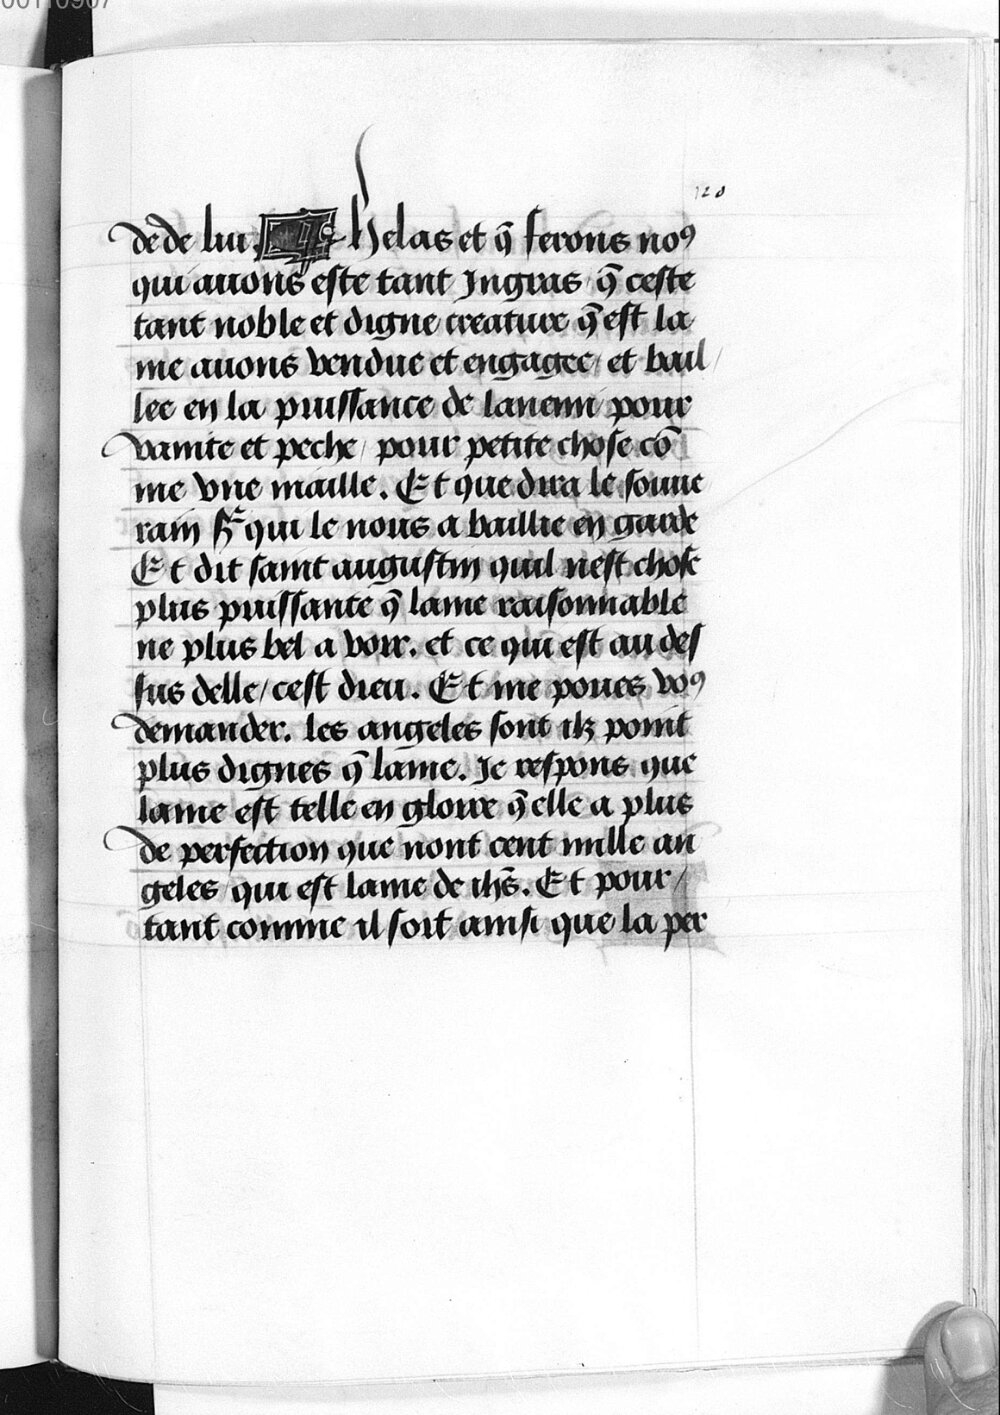 00110907
120
de de lui. ¶ Helas et q̄ ferons noꝯ
qui auons este tant Ingras / q̄ ceste
tant noble et digne creature q̄ est la
me auons vendue et engagee / et bail /
lee en la puissance de lanemi pour
vanite et peche / pour petite chose cō
me vne maille. Et que dira le souue
rain sr̄ qui le nous a baillie en garde
Et dit saint augustin quil nest chose
plus puissante q̄ lame raisonnable
ne plus bel a voir. et ce qui est au des
sus delle / cest dieu. Et me poues voꝯ
demander. les angeles sont ilz point
plus dignes q̄ lame. Je respons que
lame est telle en gloire q̄ elle a plus
de perfection que nont cent mille an
geles / qui est lame de ihs̄. Et pour /
tant comme il soit ainsi que la per